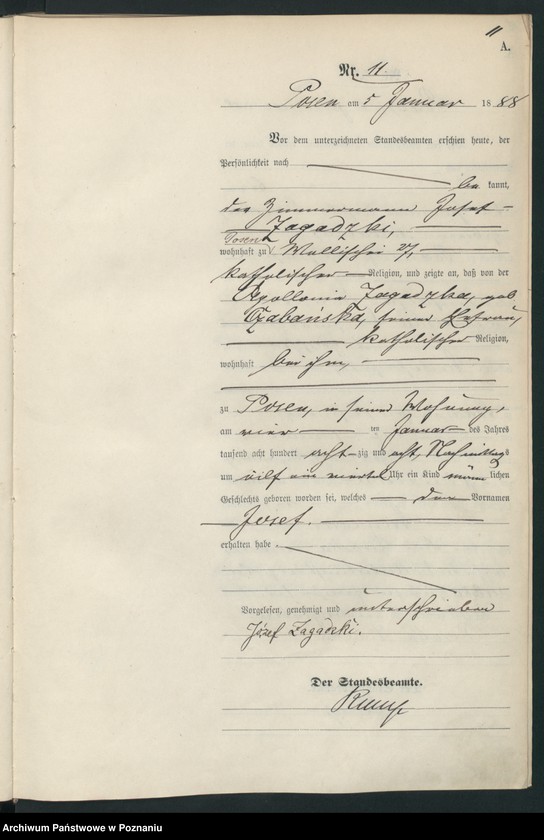 11
A.
Nr. 11.
Posen am 5 Januar 1888
Vor dem unterzeichneten Standesbeamten erschien heute, der
Persönlichkeit nach
be kannt,
der Zimmermann Josef
Zagadzki,
Posen
wohnhaft zu Wallischei 27,
katholischer Religion, und zeigte an, daß von der
Apollonia Zagadzka, geb
Czabańska, seiner Ehefrau,
katholischer Religion,
wohnhaft bei ihm,
zu Posen, in seiner Wohnung,
am vier ten Januar des Jahres
tausend acht hundert acht zig und acht, Nachmittags
um eilf ein viertel Uhr ein Kind männ lichen
Geschlechts geboren worden sei, welches den Vornamen
Josef.
erhalten habe.
Vorgelesen, genehmigt und unterschrieben
Józef Zagadzki.
Der Standesbeamte.